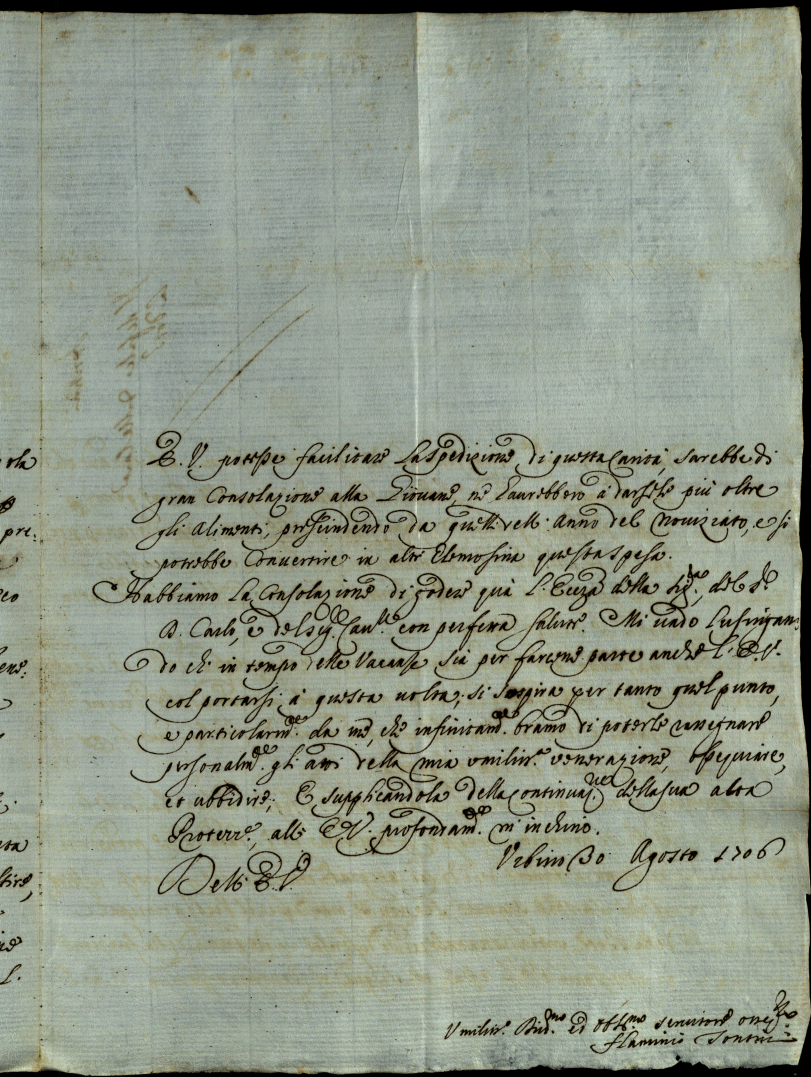 E. V. potesse facilitare la spedizione di questa Carità, sarebbe di
gran Consolazione alla Giovane, ne haurebbero à darsele più oltre
gli Alimenti, prescindendo da quelli dell' Anno del Noviziato, e si
potrebbe Convertire in altr' Elemosina questa spesa.
Habbiamo la Consolazione di godere quà l'Ecc.za della Sig.ra, del S.r
D. Carlo, e del Sig. Cau.re con perfetta salute. Mi vado lusingan
do ch' in tempo delle Vacanze sia per farcene parte anche l' E. V.
col portarsi à questa volta; si sospira per tanto quel punto,
e particolarm.te da me, che infinitam.te bramo di poterle rassegnare
personalm.te gli atti della mia umiliss.a venerazione, ossequiare,
et ubbidire; E supplicandola della continuaz.ne della sua alta
Protezz.e, all' E. V. profondam.te m' inchino.
Urbino 30 Agosto 1706
Dell' E. V.
Umiliss.o Div.mo ed Obb.mo Servitore
Flaminio